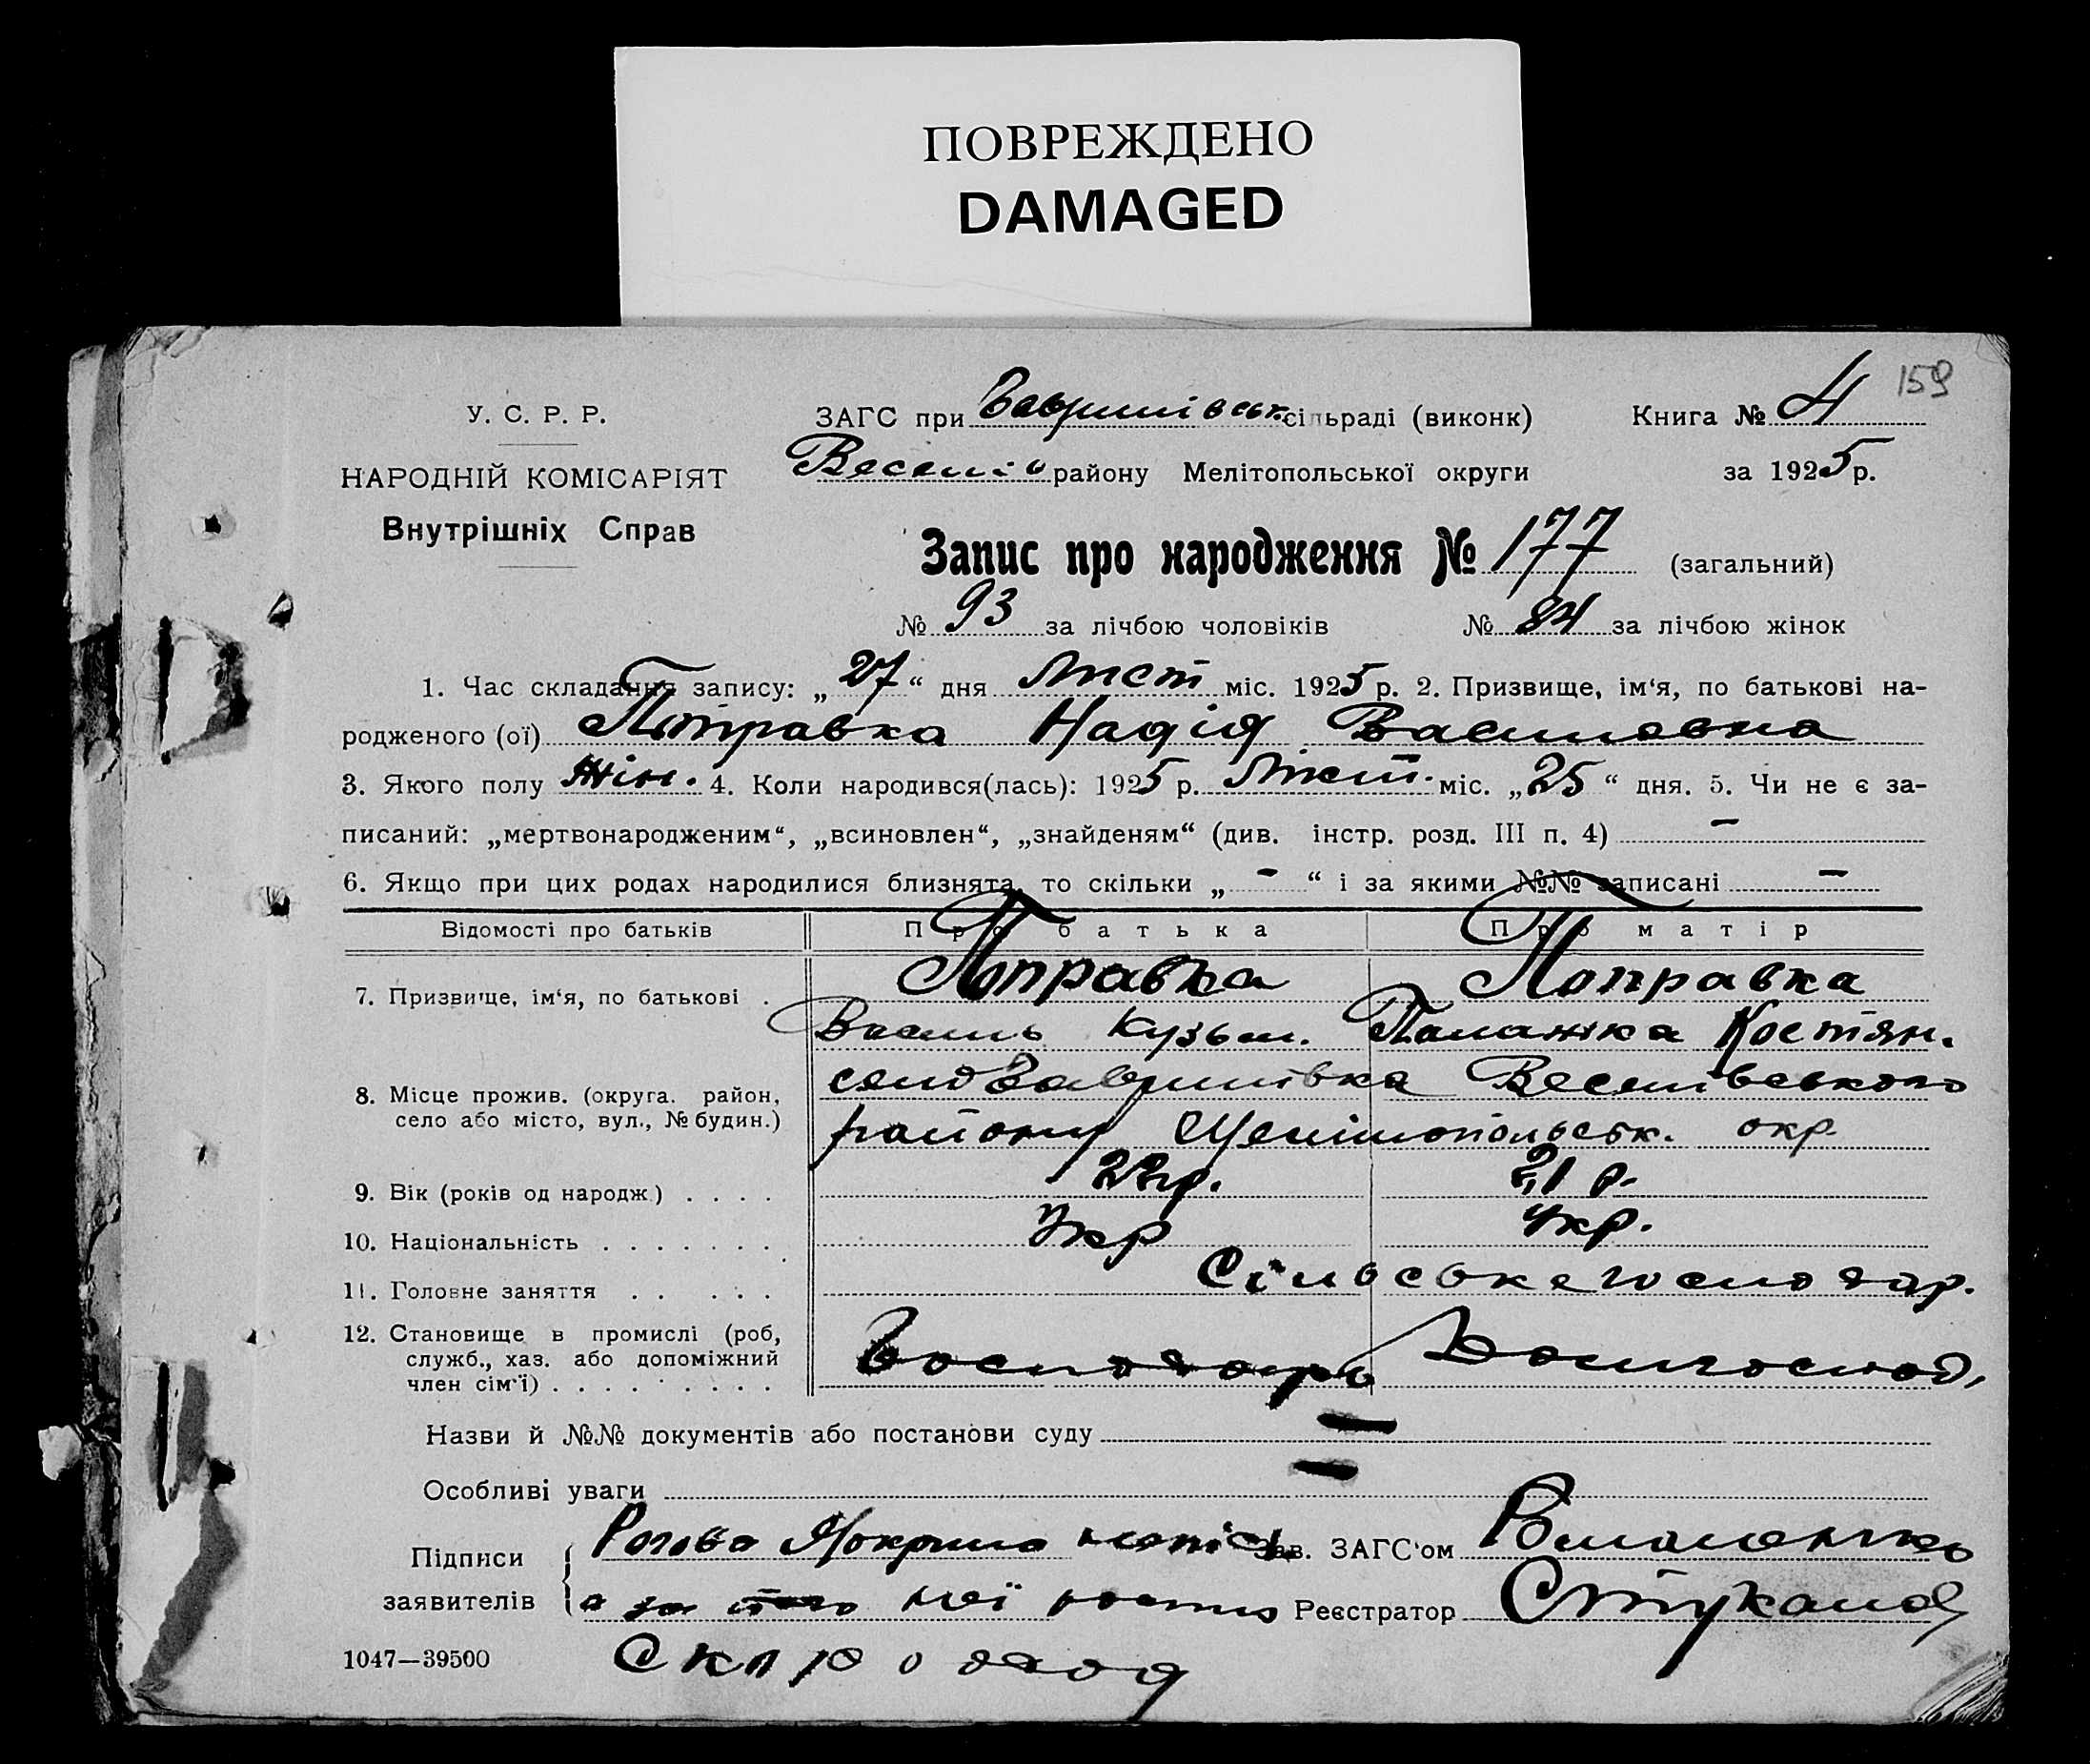 ПОВРЕЖДЕНО
DAMAGED
159
У. С. Р. Р.
НАРОДНІЙ КОМІСАРІЯТ
Внутрішніх Справ
ЗАГС при Гавришівськ. сільраді (виконк) Книга № 4
Веселів району Мелітопольської округи за 1925 р.
Запис про народження № 177 (загальний)
№ 93 за лічбою чоловіків № 84 за лічбою жінок
1. Час складання запису: „27“ дня Лист міс. 1925 р. 2. Призвище, ім‘я, по батькові на-
родженого (ої) Поправка Надія Василевна
3. Якого полу Жін. 4. Коли народився(лась): 1925 р. Лист. міс. „25“ дня. 5. Чи не є за-
писаний: „мертвонародженим“, „всиновлен“, „знайденям“ (див. інстр. розд. III п. 4) —
6. Якщо при цих родах народилися близнята, то скільки „ - “ і за якими №№ записані —
Відомості про батьків Про батька Про матір
7. Призвище, ім‘я, по батькові . Поправка Поправка
Василь Кузьм. Палажка Костян.
8. Місце прожив. (округа. район, село Гавришівка Веселівського
село або місто, вул., № будин.) району Мелітопольськ. окр.
9. Вік (років од народж.) . . . . 22 р. 21 р.
10. Національність . . . . . . . . Укр Укр.
11. Головне заняття . . . . . Сільське господар.
12. Становище в промислі (роб,
служб., хаз. або допоміжний Господарь Домгоспод,
член сім‘ї) . . . . . . . . .
Назви й №№ документів або постанови суду —
Особливі уваги —
Підписи Рогова Мокрина Зав. ЗАГС‘ом
заявителів а за неї Реєстратор
1047—39500